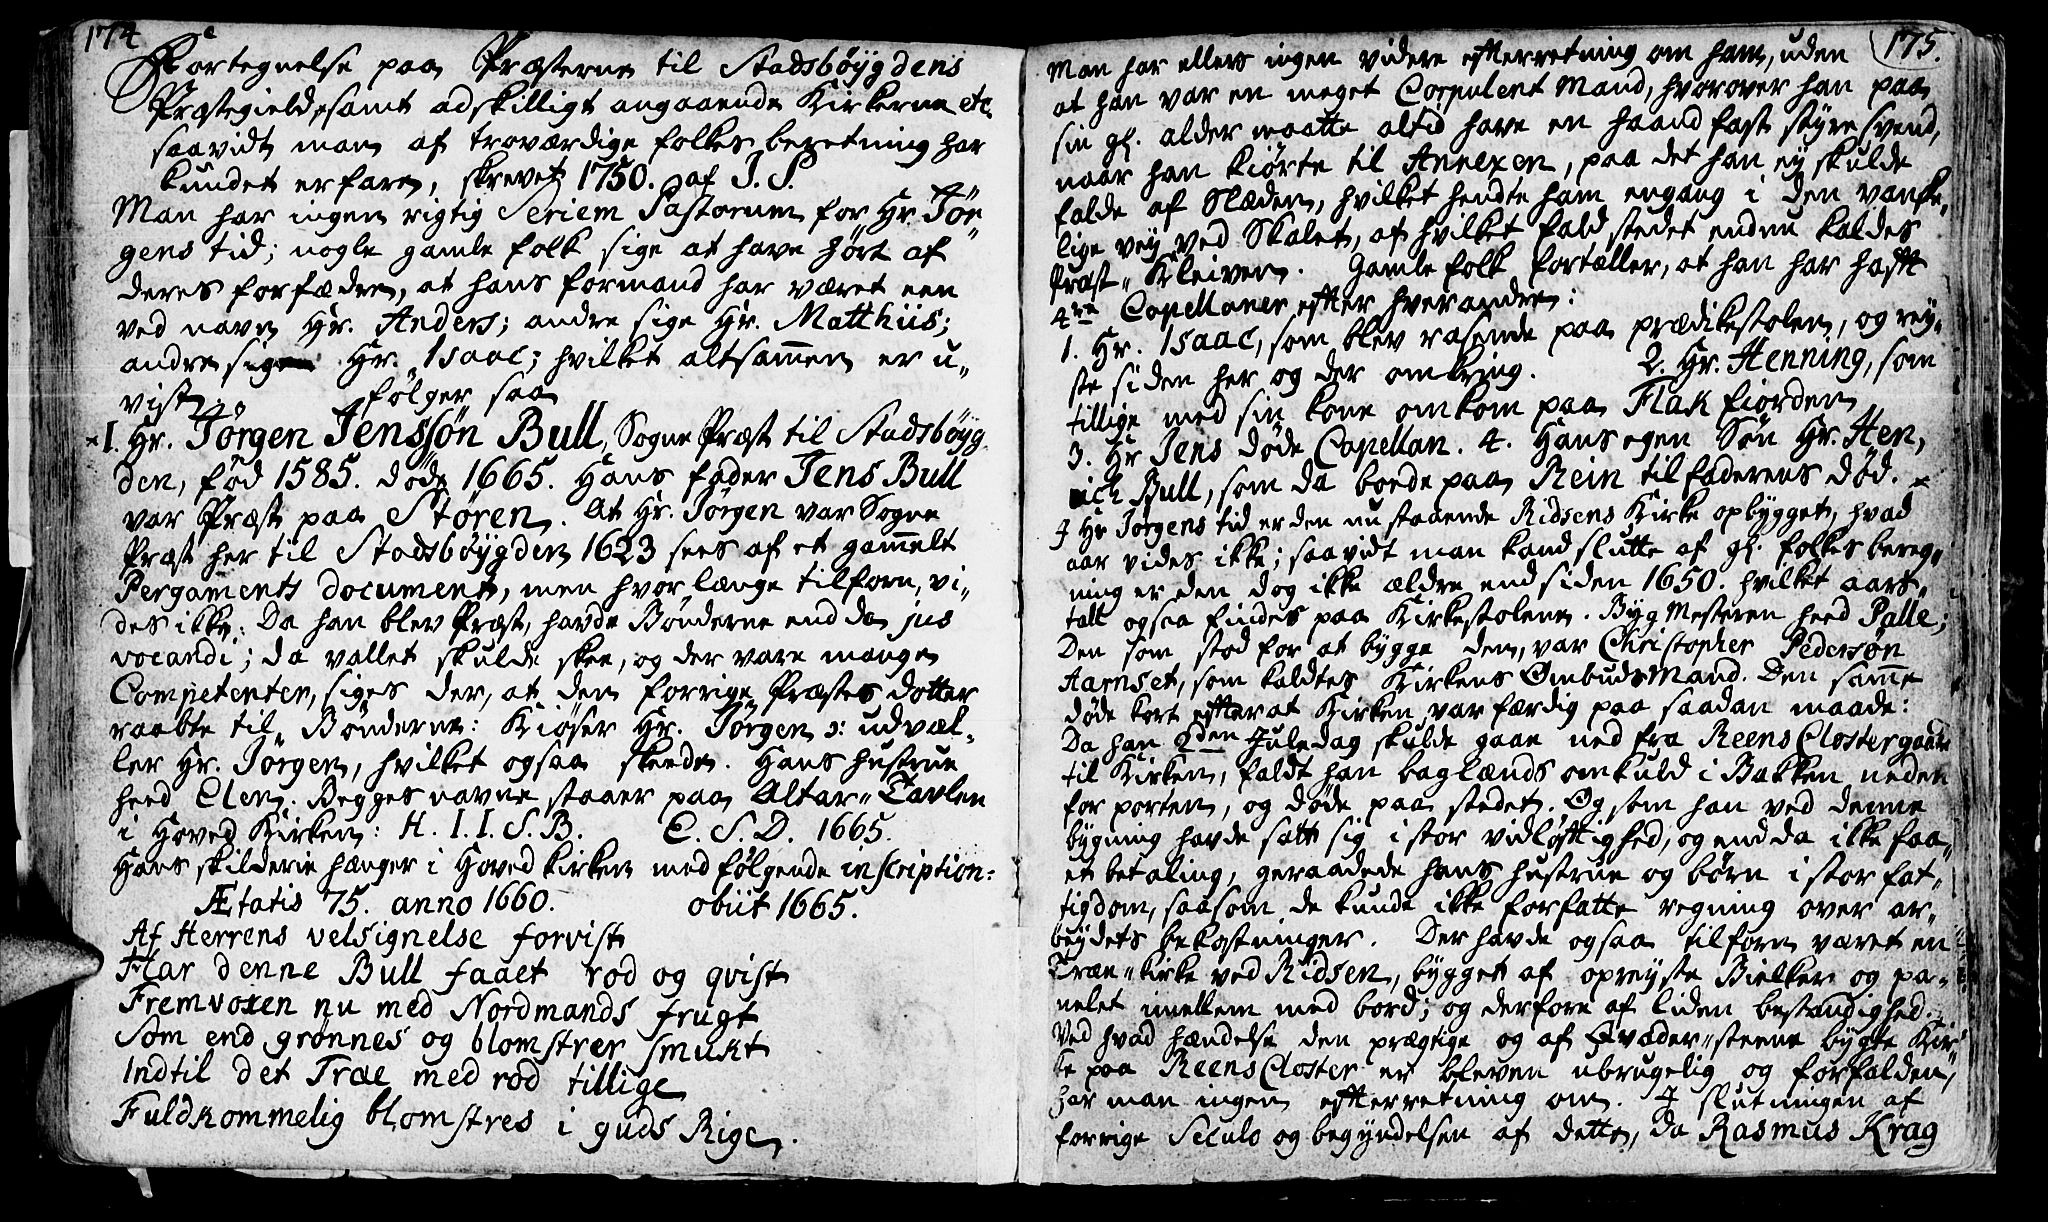 174
Fortegnelse paa Præsterne til Stadsbøygdens
Præstegield, samt adskilligt angaaende Kirkerne etc.
saavidt man af troværdige folkes beretning har
kundet erfare, skrevet 1750. af J. S.
Man har ingen rigtig Seriem Pastorum for Hr. Jør„
gens tid; nogle gamle folk sige at have hørt af
deres forfædre, at hans formand har været een
ved navn Hr. Anders; andre sige Hr. Matthiis;
andre sige Hr. Isaac; hvilket altsammen er u„
vist. følger saa
1. Hr. Jørgen Jenssøn Bull, Sogne Præst til Stadsbøyg
den, fød 1585. døde 1665. Hans fader Jens Bull
var Præst paa Støren. At Hr. Jørgen var Sogne
Præst her til Stadsbøygden 1623 sees af et gammelt
Pergaments document, men hvor længe tilforn, vi„
des ikke. Da han blev Præst, havde Bønderne end da jus
vocandi; da vallet skulde skee, og der vare mange
Competenter, siges der, at den forrige Præstes dotter
raabte til Bønderne: Kiøser Hr. Jørgen ɔ: udvæl„
ler Hr. Jørgen, hvilket ogsaa skeede. Hans hustrue
heed Elen. Begges navne staaer paa Altar„Tavlen
i Hoved Kirken: H. I. I. S. B. E. S. D. 1665.
Hans skilderie hænger i Hoved kirken med følgende inscription:
Ætatis 75. anno 1660. obiit 1665.
Af Herrens velsignelse forvist
Har denne Bull faaet rod og qvist
Fremvoxen nu med Nordmands frugt
Som end grønnes og blomstrer smukt
Indtil det Træ med rod tillige
Fuldkommelig blomstres i guds Rige.
175.
Man har ellers ingen videre efterretning om ham, uden
at han var en meget Corpulent Mand, hvorover han paa
sin gl. alder maatte altid have en haandfast styresvend,
naar han kiørte til Annexen, paa det han ey skulde
falde af Slæden, hvilket hendte ham engang i den vanske„
lige vey ved Skalet, af hvilket fald stedet endnu kaldes
Præst„Kleiven. Gamle folk fortæller, at han har haft
4re Capellaner efter hverandre:
1. Hr. Isaac, som blev rasende paa prædikestolen, og rey„
ste siden her og der omkring. 2. Hr. Henning, som
tillige med sin kone omkom paa Flakfiorden
3. Hr Jens døde Capellan. 4. Hans egen Søn Hr. Hen„
rich Bull, som da boede paa Rein til faderens død.
J Hr Jørgens tid er den nu staaende Ridsens Kirke opbygget, hvad
aar vides ikke; saavidt man kand slutte af gl. folkes bereg„
ning er den dog ikke ældre end siden 1650. hvilket aars„
tall ogsaa findes paa Kirkestolene. Byg Mesteren heed Palle;
Den som stod for at bygge den, var Christopher Pedersøn
Aarnset, som kaldtes Kirkens Ombuds Mand. Den samme
døde kort efter at Kirken var færdig paa saadan maade:
Da han 2den Juledag skulde gaae ned fra Reens Clostergaard
til Kirken, faldt han baglænds omkuld i Bakken neden
for porten, og døde paa stedet. Og som han ved denne
bygning havde satt sig i stor vidløftighed, og end da ikke faa„
et betaling, geraadede hans hustrue og børn i stor fat„
tigdom, saasom de kunde ikke forfatte regning over ar„
beydets bekostninger. Der havde ogsaa tilforn været en
Træe„kirke ved Ridsen, bygget af opreyste Bielker og pa„
nelet imellem med bord; og derfore af liden bestandighed.
Ved hvad hændelse den prægtige og af Qvader„steene bygte Kir„
ke paa Reens Closter er bleven ubrugelig og forfalden,
har man ingen efterretning om. J slutningen af
forrige Seculo og begyndelsen af dette, da Rasmus Krag